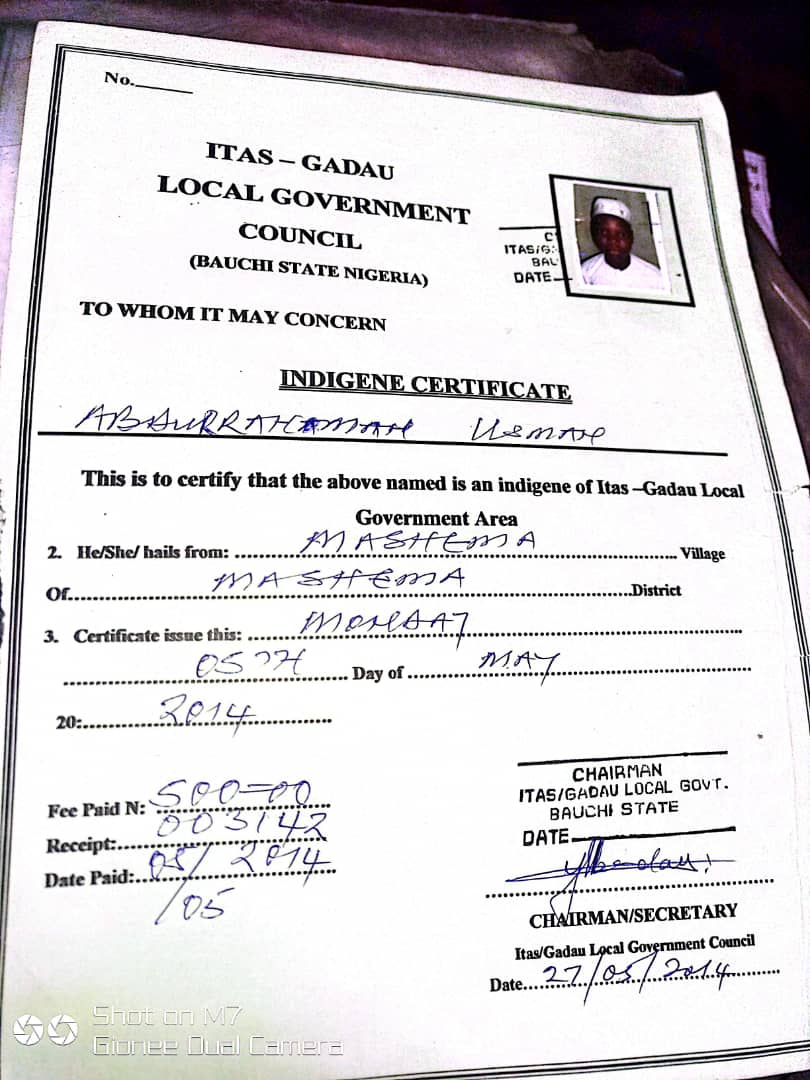 No.
ITAS – GADAU
LOCAL GOVERNMENT
COUNCIL
(BAUCHI STATE NIGERIA)
C
ITAS/G
BAU
DATE
TO WHOM IT MAY CONCERN
INDIGENE CERTIFICATE
ABDURRAHAMAN USMAN
This is to certify that the above named is an indigene of Itas –Gadau Local
Government Area
2. He/She/ hails from: MASHEMA Village
Of MASHEMA District
3. Certificate issue this: MONDAY
05TH Day of MAY
20: 2014
Fee Paid N: 500=00
Receipt: 003142
Date Paid: 05/ 2014
/05
CHAIRMAN
ITAS/GADAU LOCAL GOVT.
BAUCHI STATE
DATE
CHAIRMAN/SECRETARY
Itas/Gadau Local Government Council
Date 27/05/2014
Shot on M7
Gionee Dual Camera